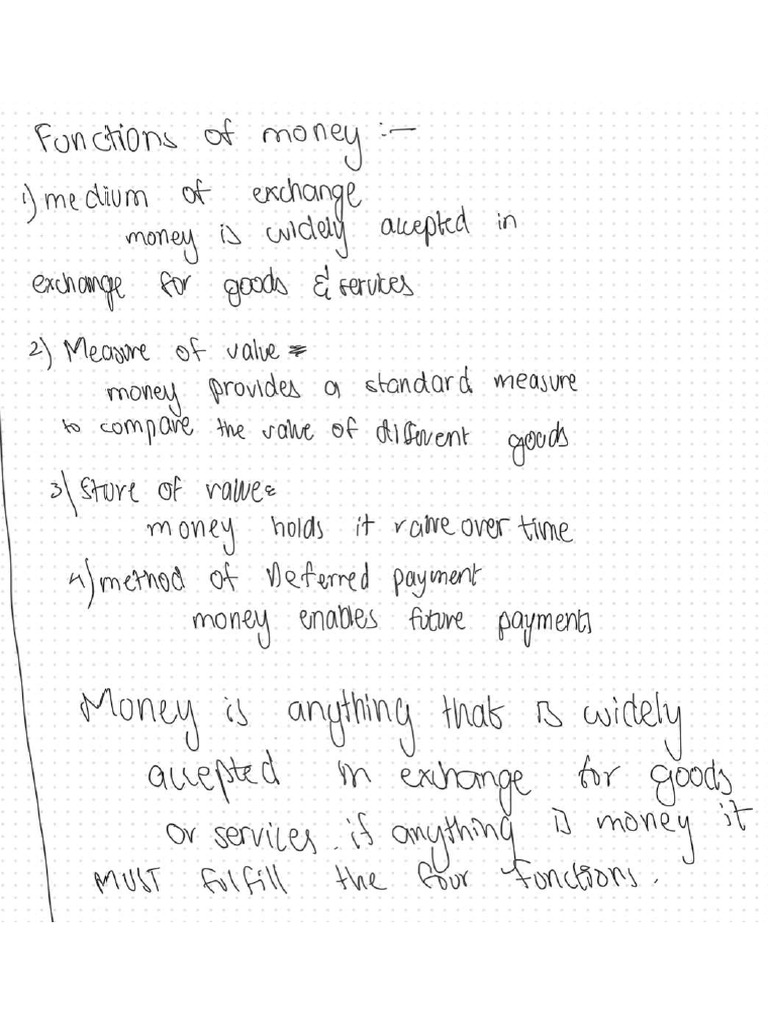 Functions of money :-
1) medium of exchange
money is widely accepted in
exchange for goods & services
2) Measure of value
money provides a standard measure
to compare the value of different goods
3) Store of value
money holds it value over time
4) method of Deferred payment
money enables future payments
Money is anything that is widely
accepted in exchange for goods
or services. if anything is money it
MUST fulfill the four functions.